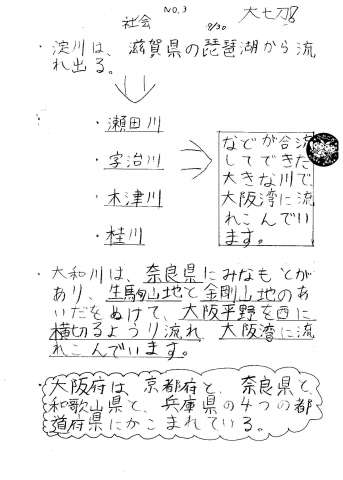 NO.3
社会
9/30
・淀川は、滋賀県の琵琶湖から流
れ出る。
・瀬田川
・宇治川
・木津川
・桂川
などが合流
してできた
大きな川で、
大阪湾に流
れこんでい
ます。
・大和川は、奈良県にみなもとが
あり、生駒山地と金剛山地のあ
いだをぬけて、大阪平野を西に
横切るように流れ、大阪湾に流
れこんでいます。
・大阪府は、京都府と、奈良県と、
和歌山県と、兵庫県の4つの都
道府県にかこまれている。